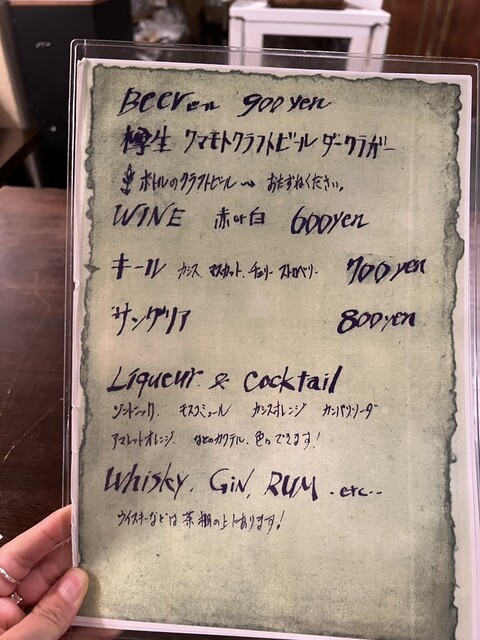 Beer ビール 900yen
樽生 クマモトクラフトビール ダークラガー
ボトルのクラフトビール → おたずねください。
WINE 赤 or 白 600yen
キール カシス、マスカット、チェリー ストロベリー 700yen
サングリア 800yen
Liqueur & cocktail
ジントニック、モスコミュール カシスオレンジ カンパリソーダ
アマレットオレンジ、などのカクテル、色々できます!
Whisky, Gin, RUM . etc..
ウイスキーなどは茶棚の上にあります!